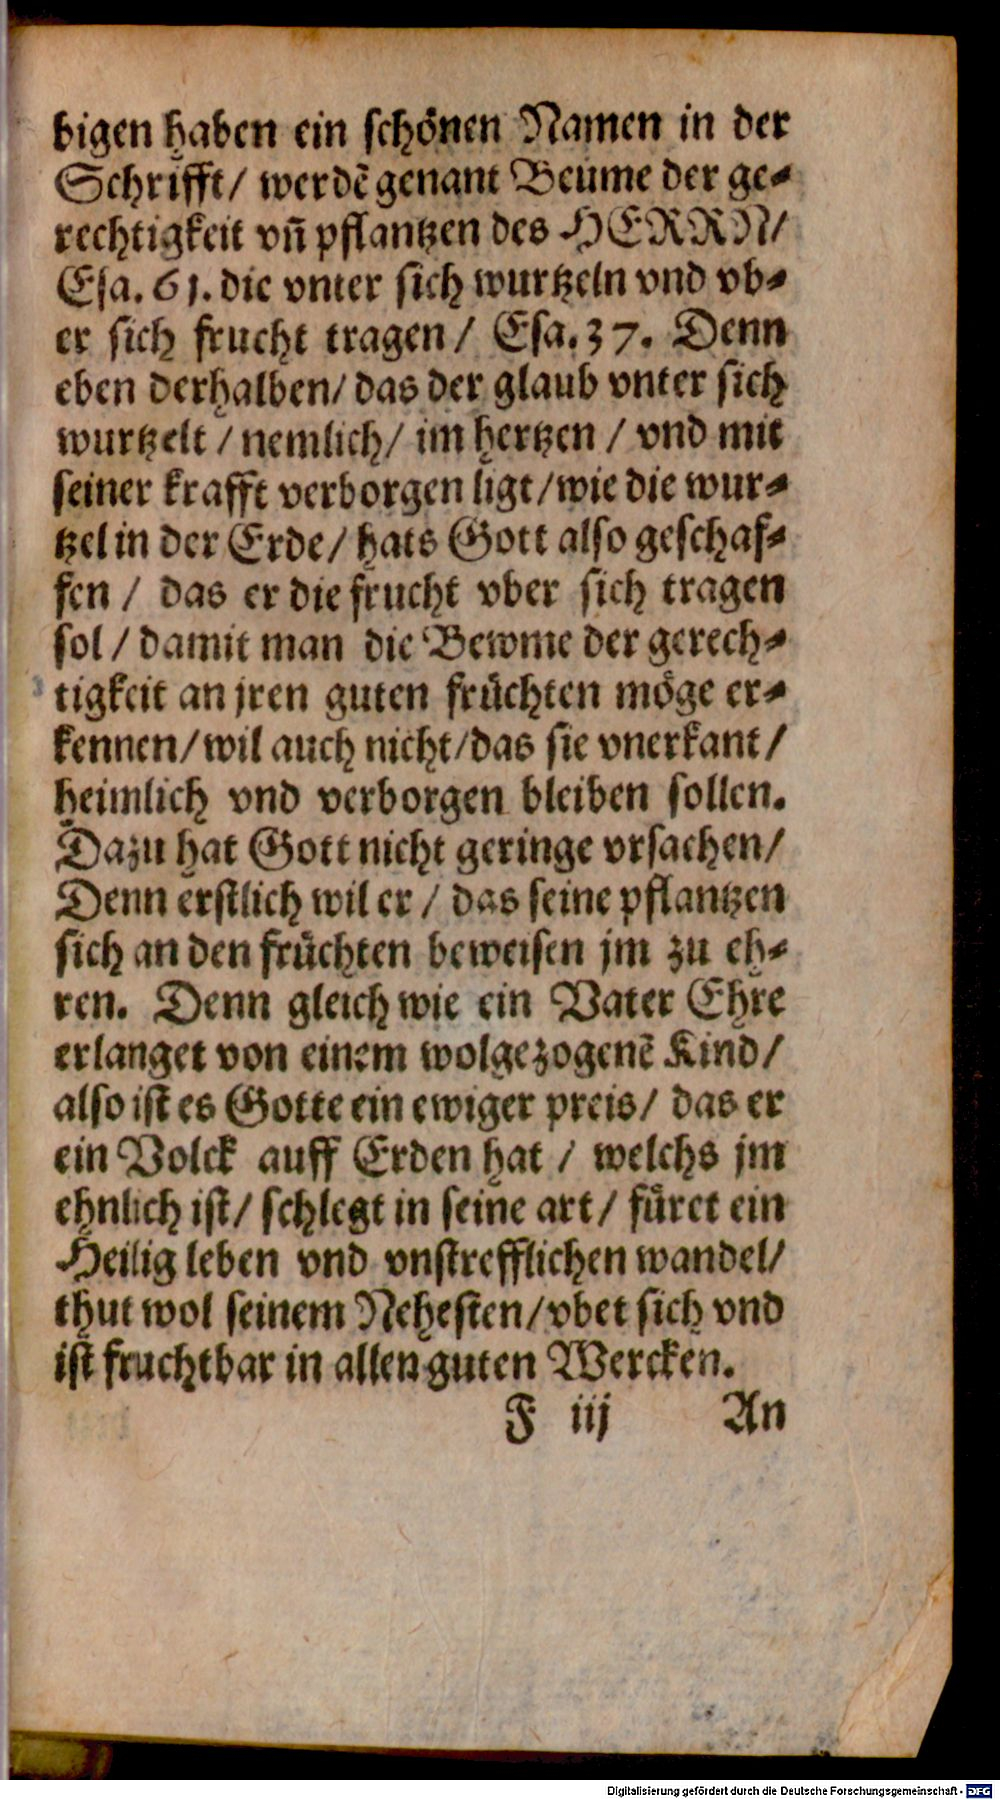 bigen haben ein schönen Namen in der
Schrifft/ werdẽ genant Beume der ge-
rechtigkeit vñ pflantzen des HERRN/
Esa. 61. die vnter sich wurtzeln vnd vb-
er sich frucht tragen/ Esa. 37. Denn
eben derhalben/ das der glaub vnter sich
wurtzelt/ nemlich/ im hertzen/ vnd mit
seiner krafft verborgen ligt/ wie die wur-
tzel in der Erde/ hats Gott also geschaf-
fen/ das er die frucht vber sich tragen
sol/ damit man die Bewme der gerech-
tigkeit an jren guten früchten möge er-
kennen/ wil auch nicht/ das sie vnerkant/
heimlich vnd verborgen bleiben sollen.
Dazu hat Gott nicht geringe vrsachen/
Denn erstlich wil er/ das seine pflantzen
sich an den früchten beweisen jm zu eh-
ren. Denn gleich wie ein Vater Ehre
erlanget von einem wolgezogenẽ Kind/
also ist es Gotte ein ewiger preis/ das er
ein Volck auff Erden hat/ welchs jm
ehnlich ist/ schlegt in seine art/ füret ein
Heilig leben vnd vnstrefflichen wandel/
thut wol seinem Nehesten/ vbet sich vnd
ist fruchtbar in allen guten Wercken.
F iij An
Digitalisierung gefördert durch die Deutsche Forschungsgemeinschaft - DFG